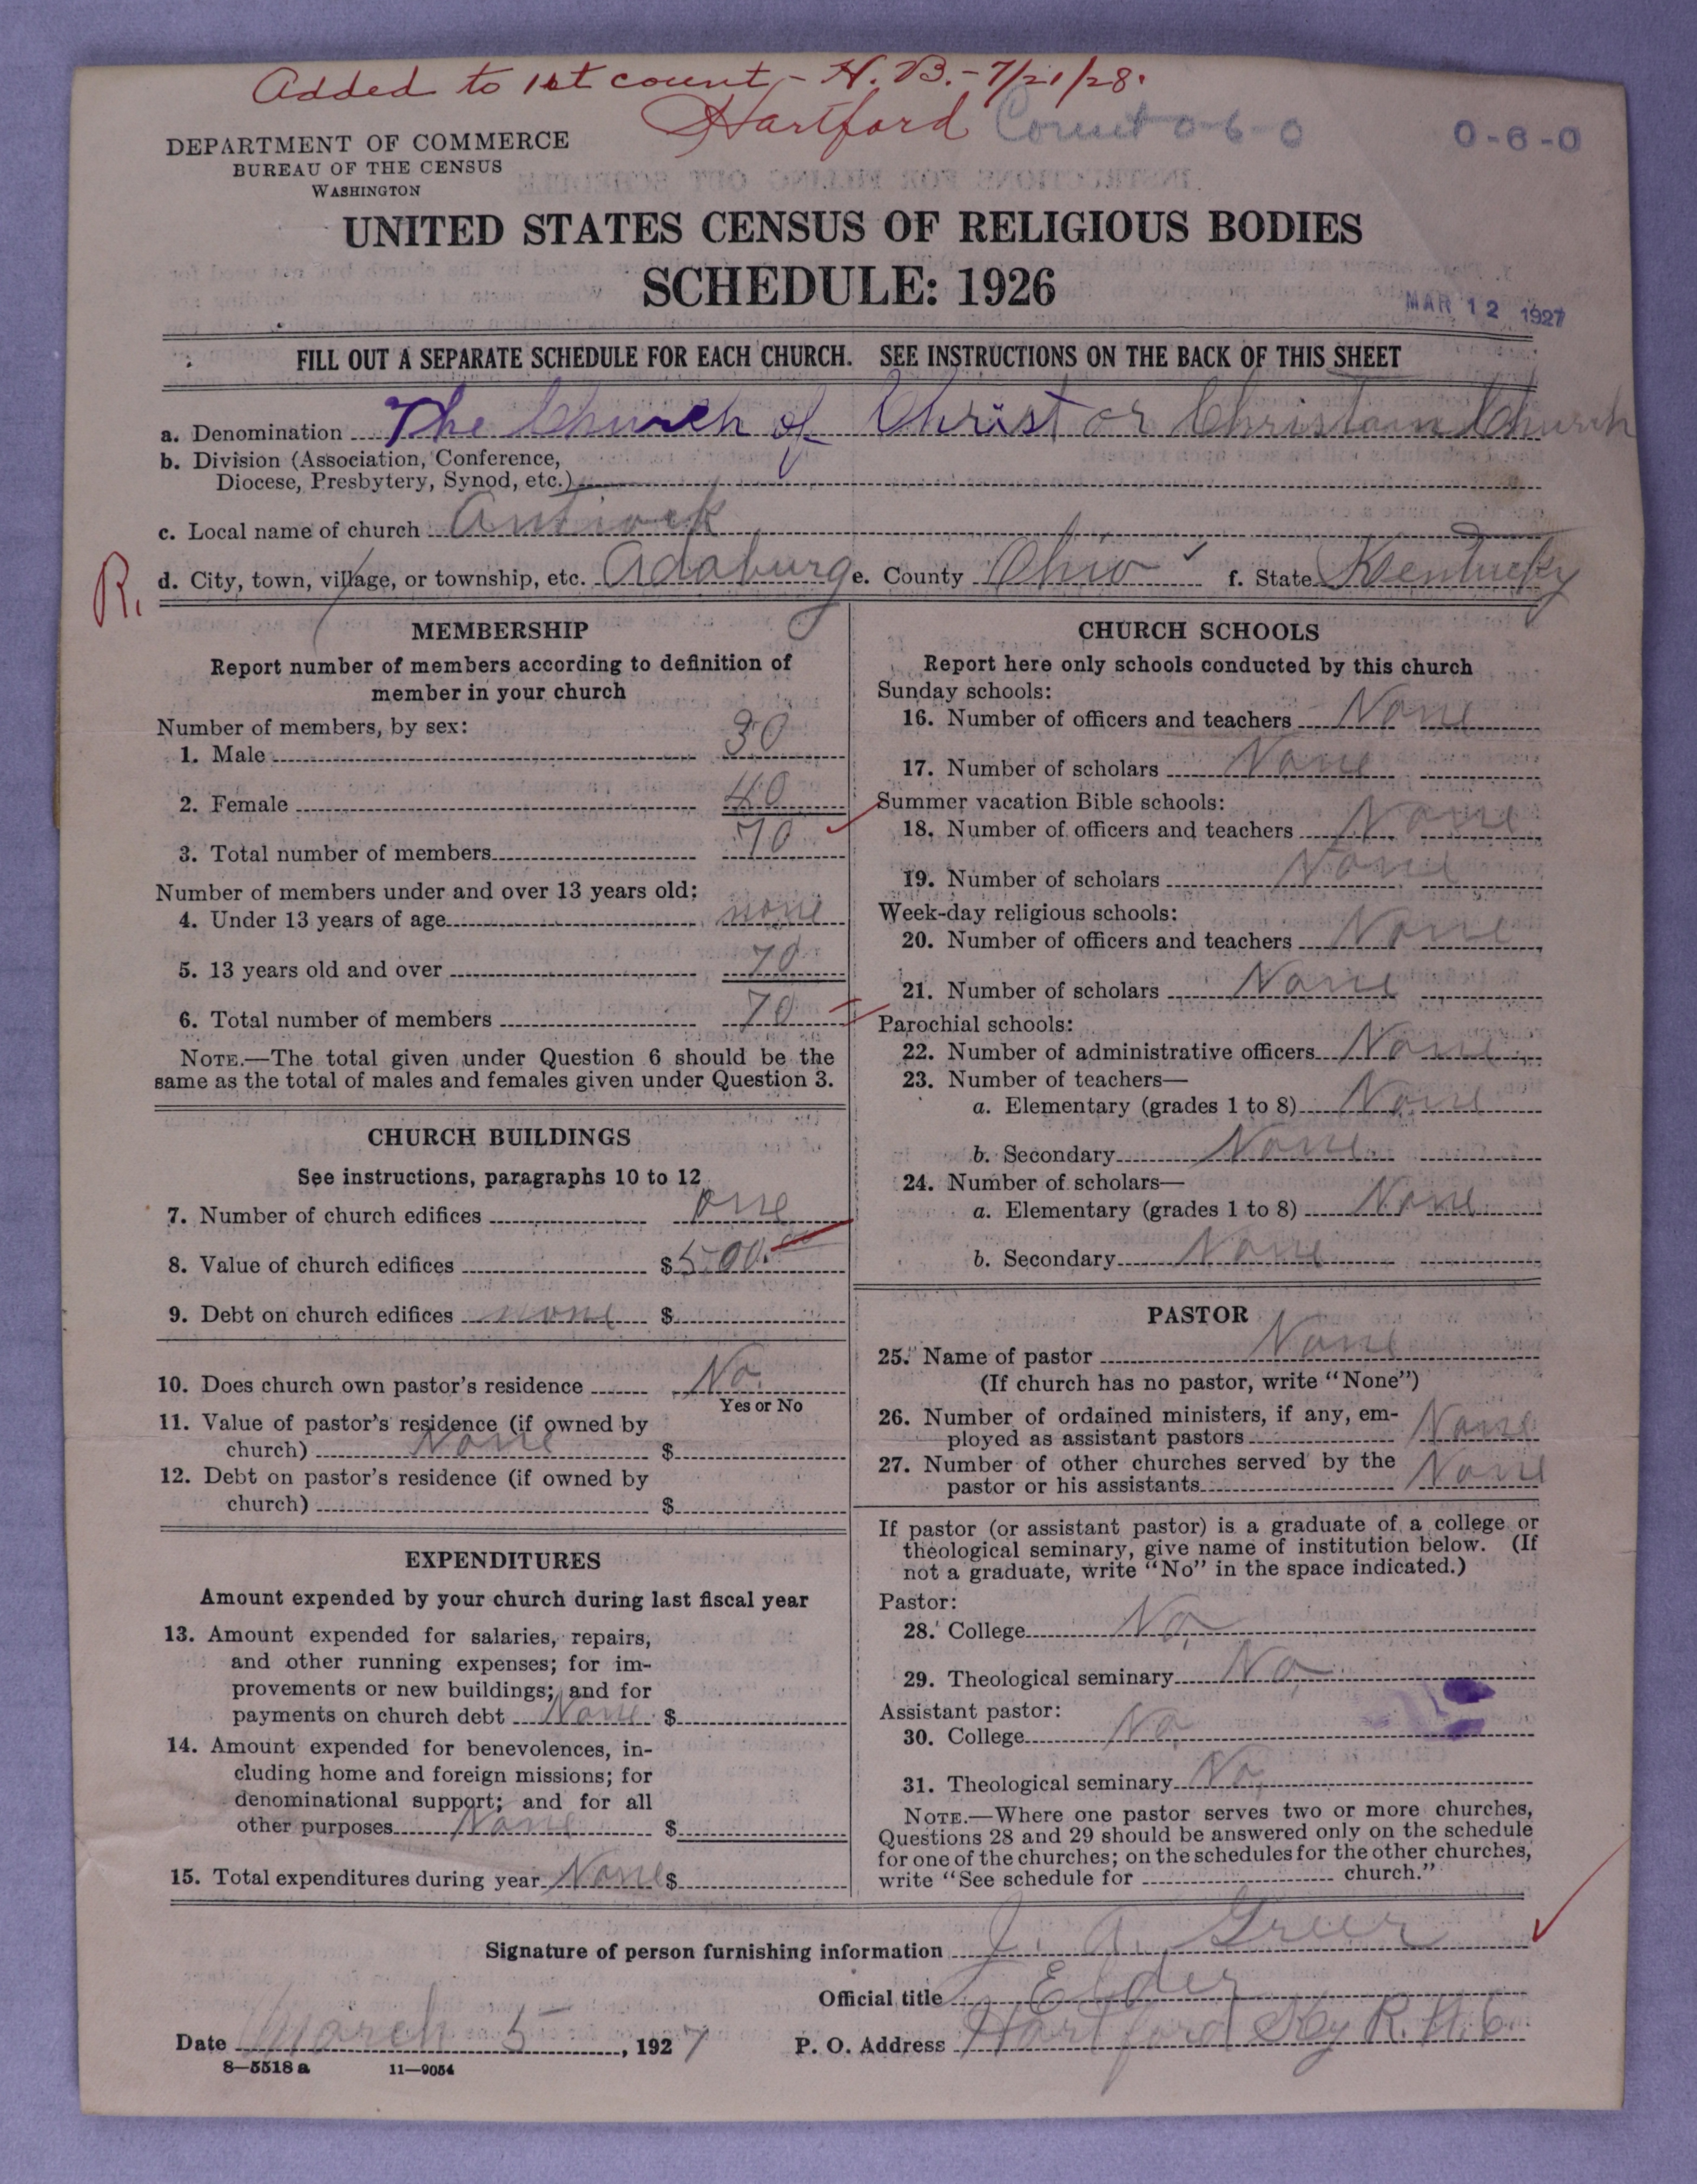 Added to 1st count - H. B. - 7/21/28.
Hartford Count 0-6-0
0-6-0
DEPARTMENT OF COMMERCE
BUREAU OF THE CENSUS
WASHINGTON
UNITED STATES CENSUS OF RELIGIOUS BODIES
SCHEDULE: 1926
MAR 12 1927
FILL OUT A SEPARATE SCHEDULE FOR EACH CHURCH. SEE INSTRUCTIONS ON THE BACK OF THIS SHEET
a. Denomination The Church of Christ or Christain Church
b. Division (Association, Conference,
Diocese, Presbytery, Synod, etc.)
c. Local name of church Antiock
R. d. City, town, village, or township, etc. Adaburg e. County Ohio f. State Kentucky
MEMBERSHIP
Report number of members according to definition of
member in your church
Number of members, by sex:
1. Male 30
2. Female 40
3. Total number of members 70
Number of members under and over 13 years old:
4. Under 13 years of age none
5. 13 years old and over 70
6. Total number of members 70
NOTE.—The total given under Question 6 should be the
same as the total of males and females given under Question 3.
CHURCH BUILDINGS
See instructions, paragraphs 10 to 12
7. Number of church edifices one
8. Value of church edifices $500.00
9. Debt on church edifices none $
10. Does church own pastor's residence No.
Yes or No
11. Value of pastor's residence (if owned by
church) None $
12. Debt on pastor's residence (if owned by
church) $
EXPENDITURES
Amount expended by your church during last fiscal year
13. Amount expended for salaries, repairs,
and other running expenses; for im-
provements or new buildings; and for
payments on church debt None $
14. Amount expended for benevolences, in-
cluding home and foreign missions; for
denominational support; and for all
other purposes None $
15. Total expenditures during year None $
CHURCH SCHOOLS
Report here only schools conducted by this church
Sunday schools:
16. Number of officers and teachers None
17. Number of scholars None
Summer vacation Bible schools:
18. Number of officers and teachers None
19. Number of scholars None
Week-day religious schools:
20. Number of officers and teachers None
21. Number of scholars None
Parochial schools:
22. Number of administrative officers None
23. Number of teachers—
a. Elementary (grades 1 to 8) None
b. Secondary None
24. Number of scholars—
a. Elementary (grades 1 to 8) None
b. Secondary None
PASTOR
25. Name of pastor None
(If church has no pastor, write "None")
26. Number of ordained ministers, if any, em-
ployed as assistant pastors None
27. Number of other churches served by the
pastor or his assistants None
If pastor (or assistant pastor) is a graduate of a college or
theological seminary, give name of institution below. (If
not a graduate, write "No" in the space indicated.)
Pastor:
28. College No.
29. Theological seminary No,
Assistant pastor:
30. College No
31. Theological seminary No,
NOTE.—Where one pastor serves two or more churches,
Questions 28 and 29 should be answered only on the schedule
for one of the churches; on the schedules for the other churches,
write "See schedule for church."
Signature of person furnishing information J. A. Greer
Official title Elder
Date March 5 , 1927 P. O. Address Hartford Ky R. #6
8—5518 a 11—9054